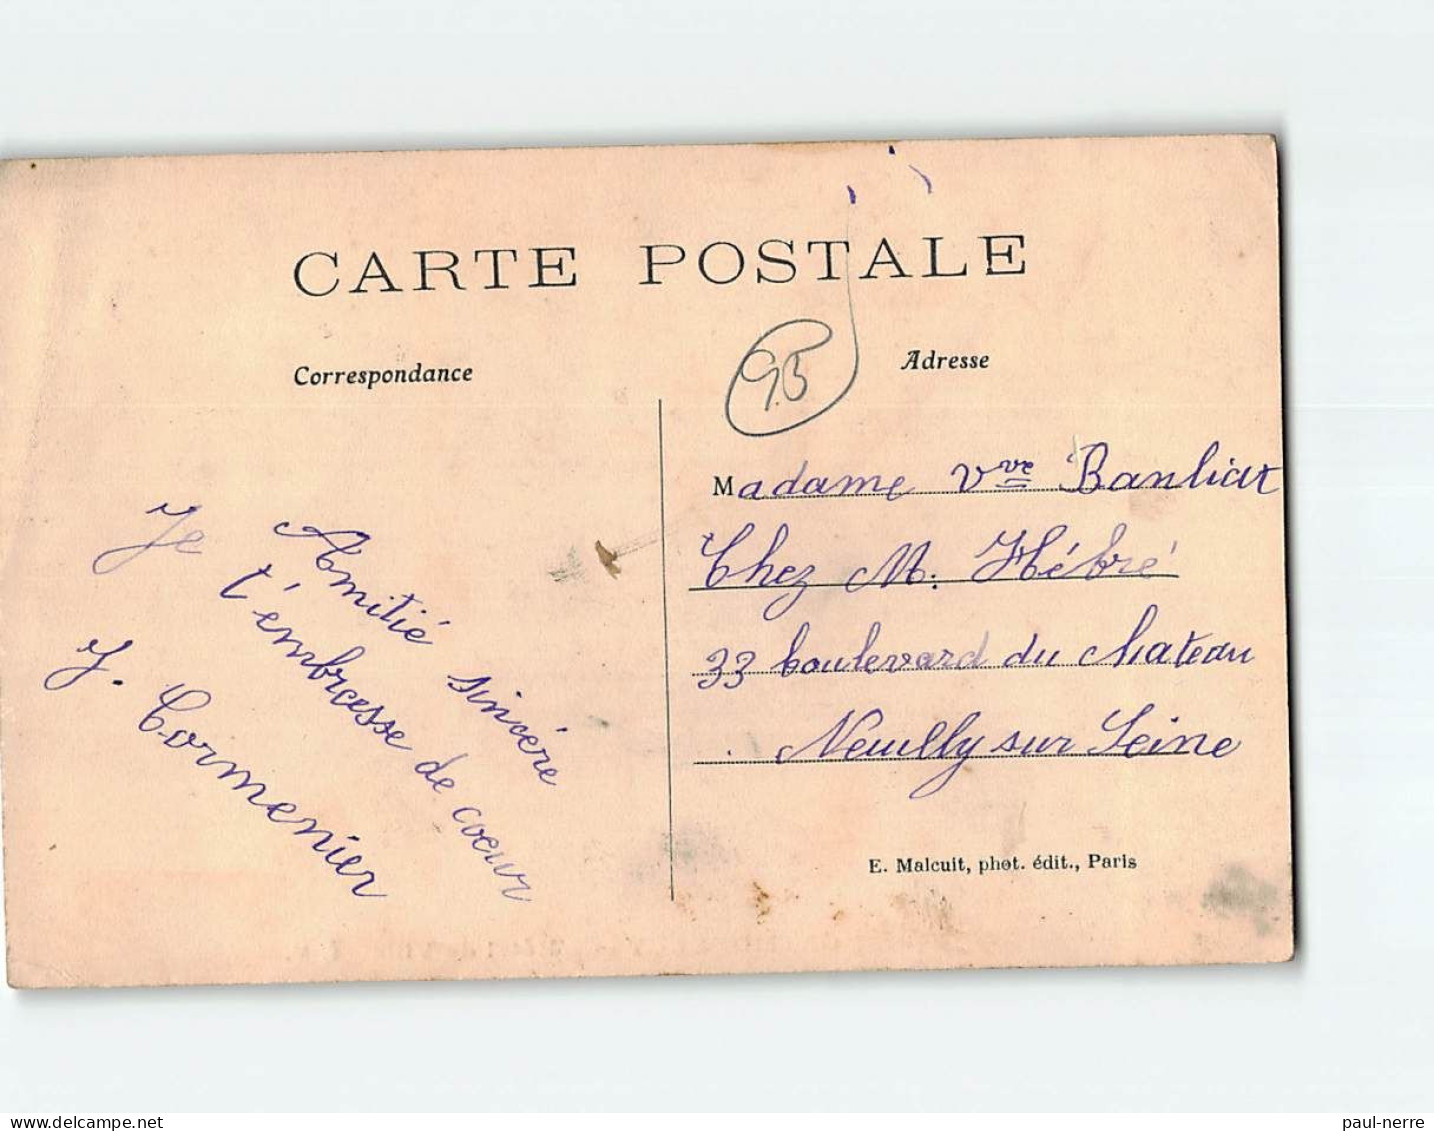 CARTE POSTALE
Correspondance
Adresse
95
Amitié sincère
Je t'embrasse de coeur
J. Cormenier
Madame Vve Banliat
Chez M. Hébré
33 boulevard du chateau
Neuilly sur Seine
E. Malcuit, phot. édit., Paris
delcampe.net
paul-nerre